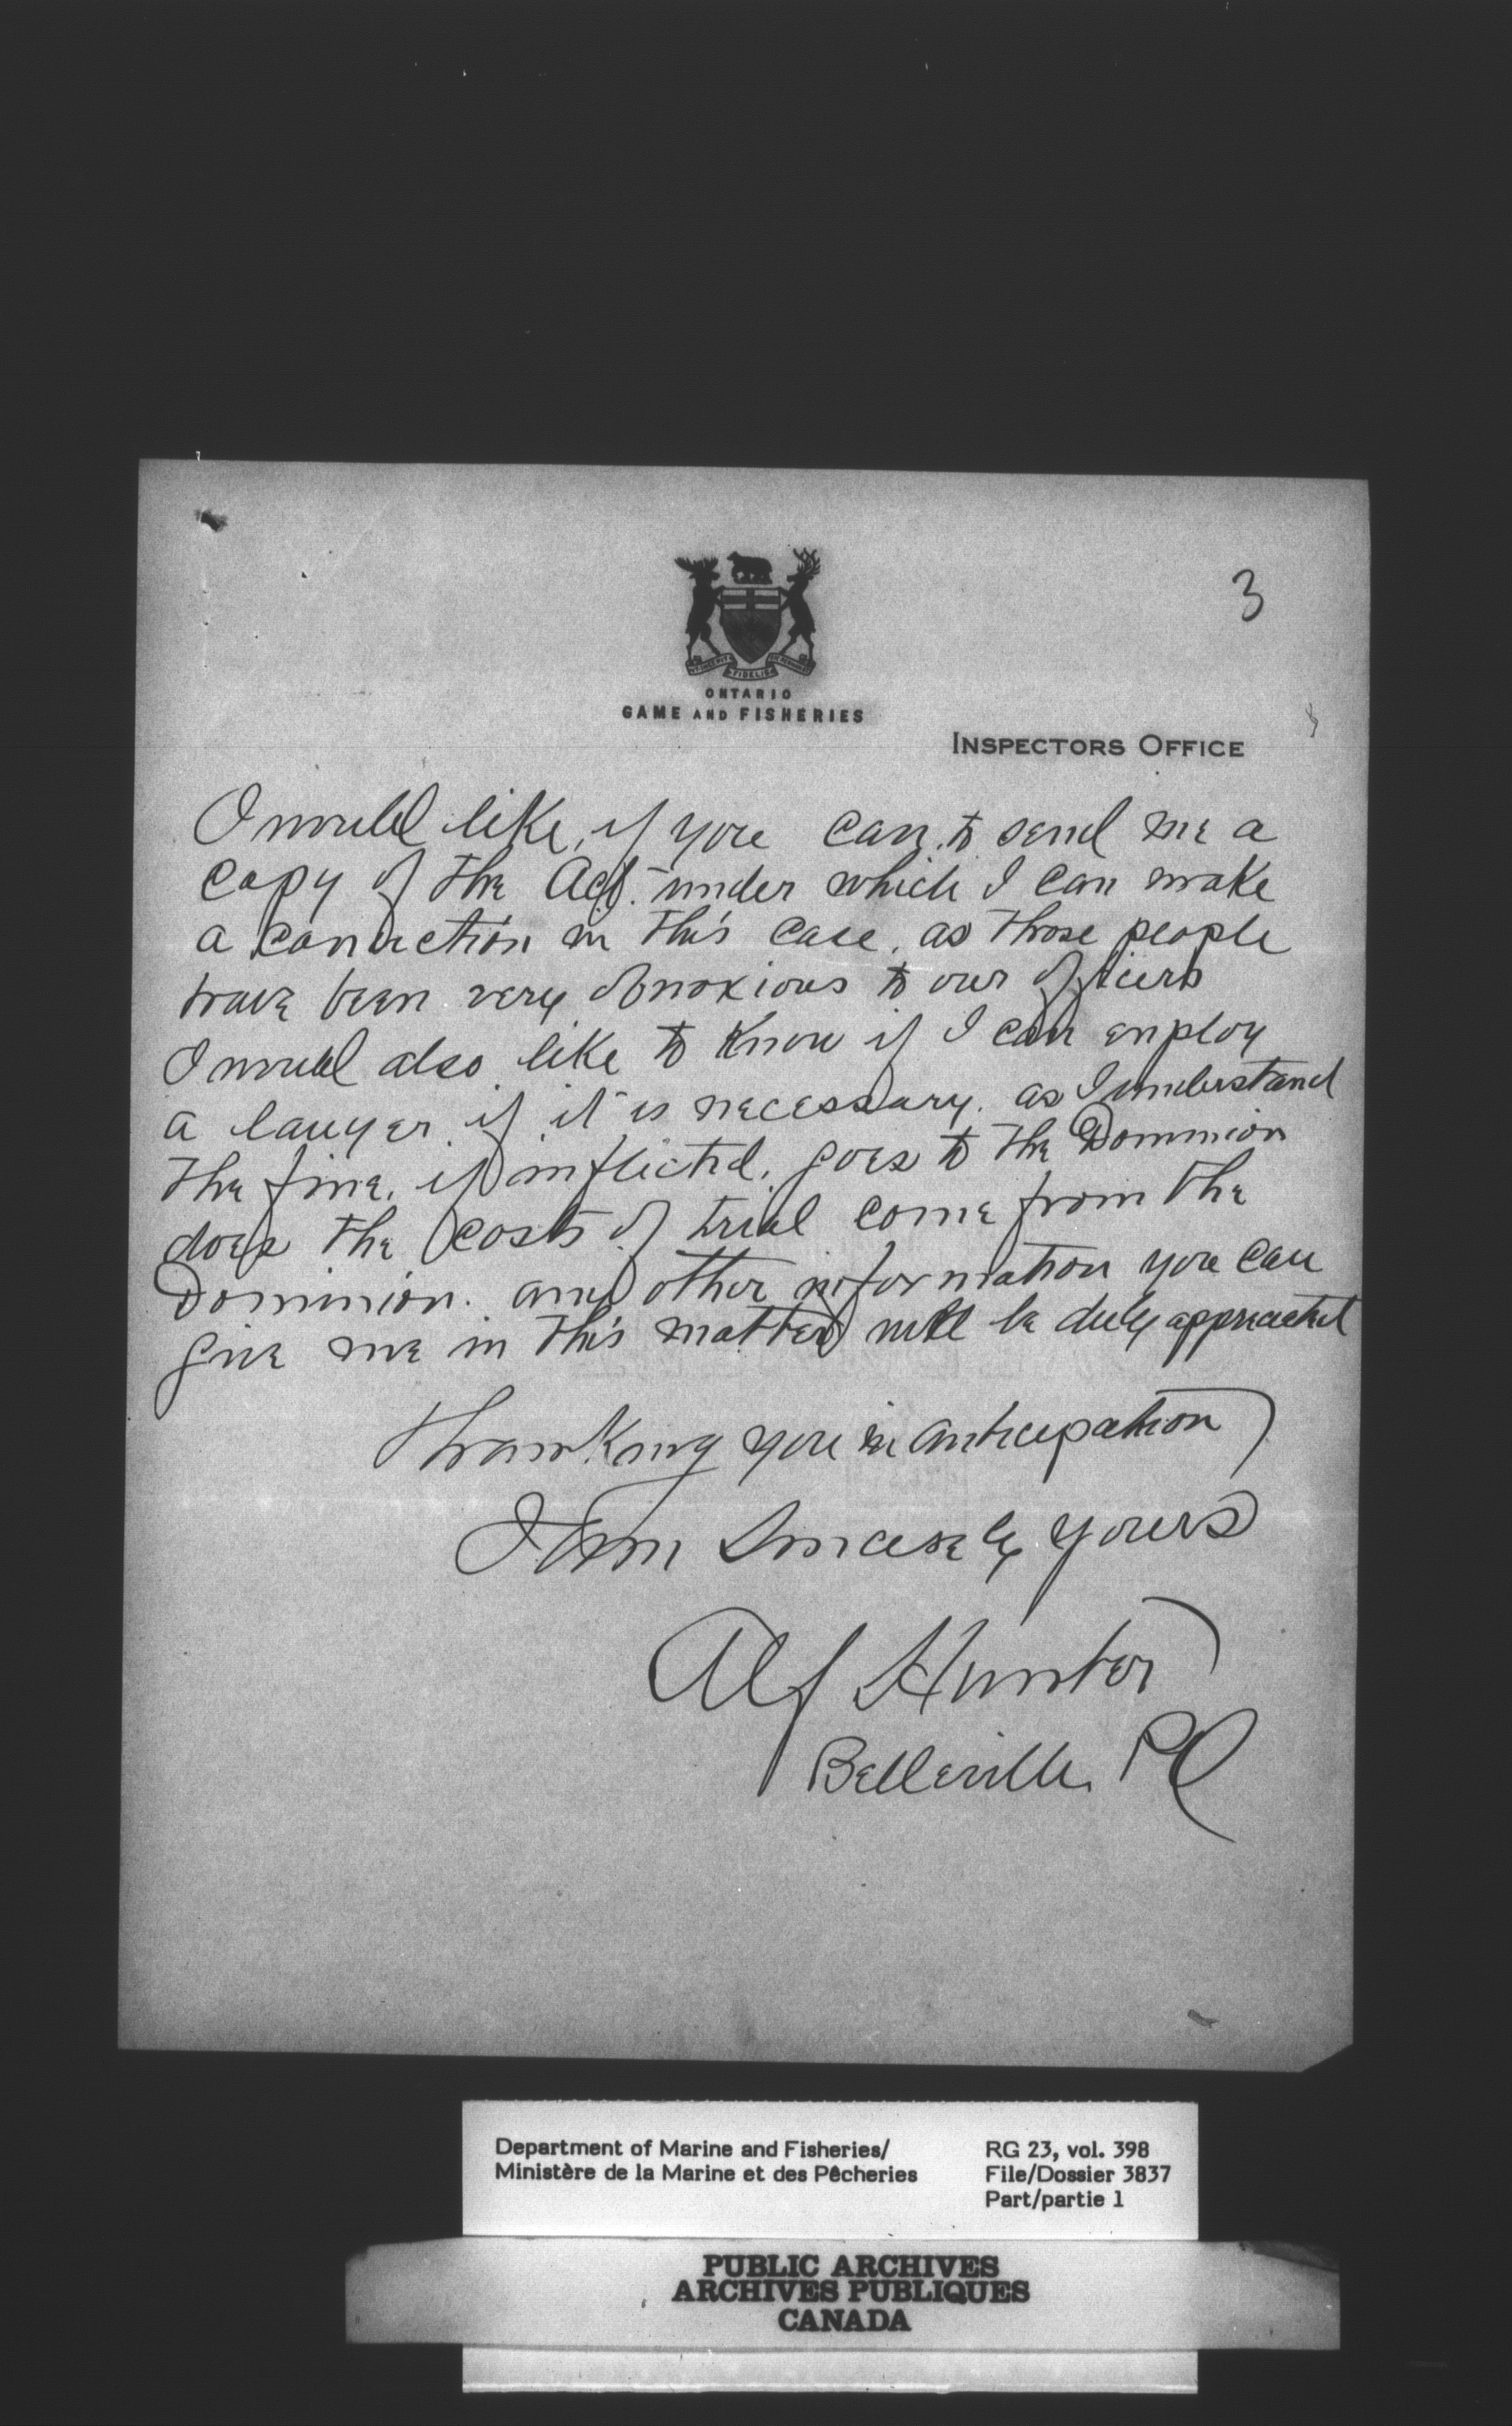 3
FIDELIS
ONTARIO
GAME AND FISHERIES
INSPECTORS OFFICE
I would like, if you can, to send me a
copy of the Act. under which I can make
a conviction in this case, as those people
have been very obnoxious to our officers
I would also like to know if I can employ
a lawyer if it is necessary. as I understand
the fine, if inflicted, goes to the Dominion
does the costs of trial come from the
Dominion. any other information you can
give me in this matter will be duly appreciated
Thanking you in anticipation
I am Sincerely yours
Alf Hunter
Belleville
Department of Marine and Fisheries/
Ministère de la Marine et des Pêcheries
RG 23, vol. 398
File/Dossier 3837
Part/partie 1
PUBLIC ARCHIVES
ARCHIVES PUBLIQUES
CANADA